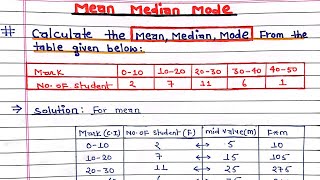 Mean Median Mode
# Calculate the Mean, Median, Mode From the
table given below:
Mark 0-10 10-20 20-30 30-40 40-50
No. of Student 2 7 11 6 1
⇒ Solution: For mean
Mark (C.I) No. of Student (F) mid value (m) F×m
0-10 2 ↔ 5 10
10-20 7 ↔ 15 105
20-30 11 ↔ 25 275